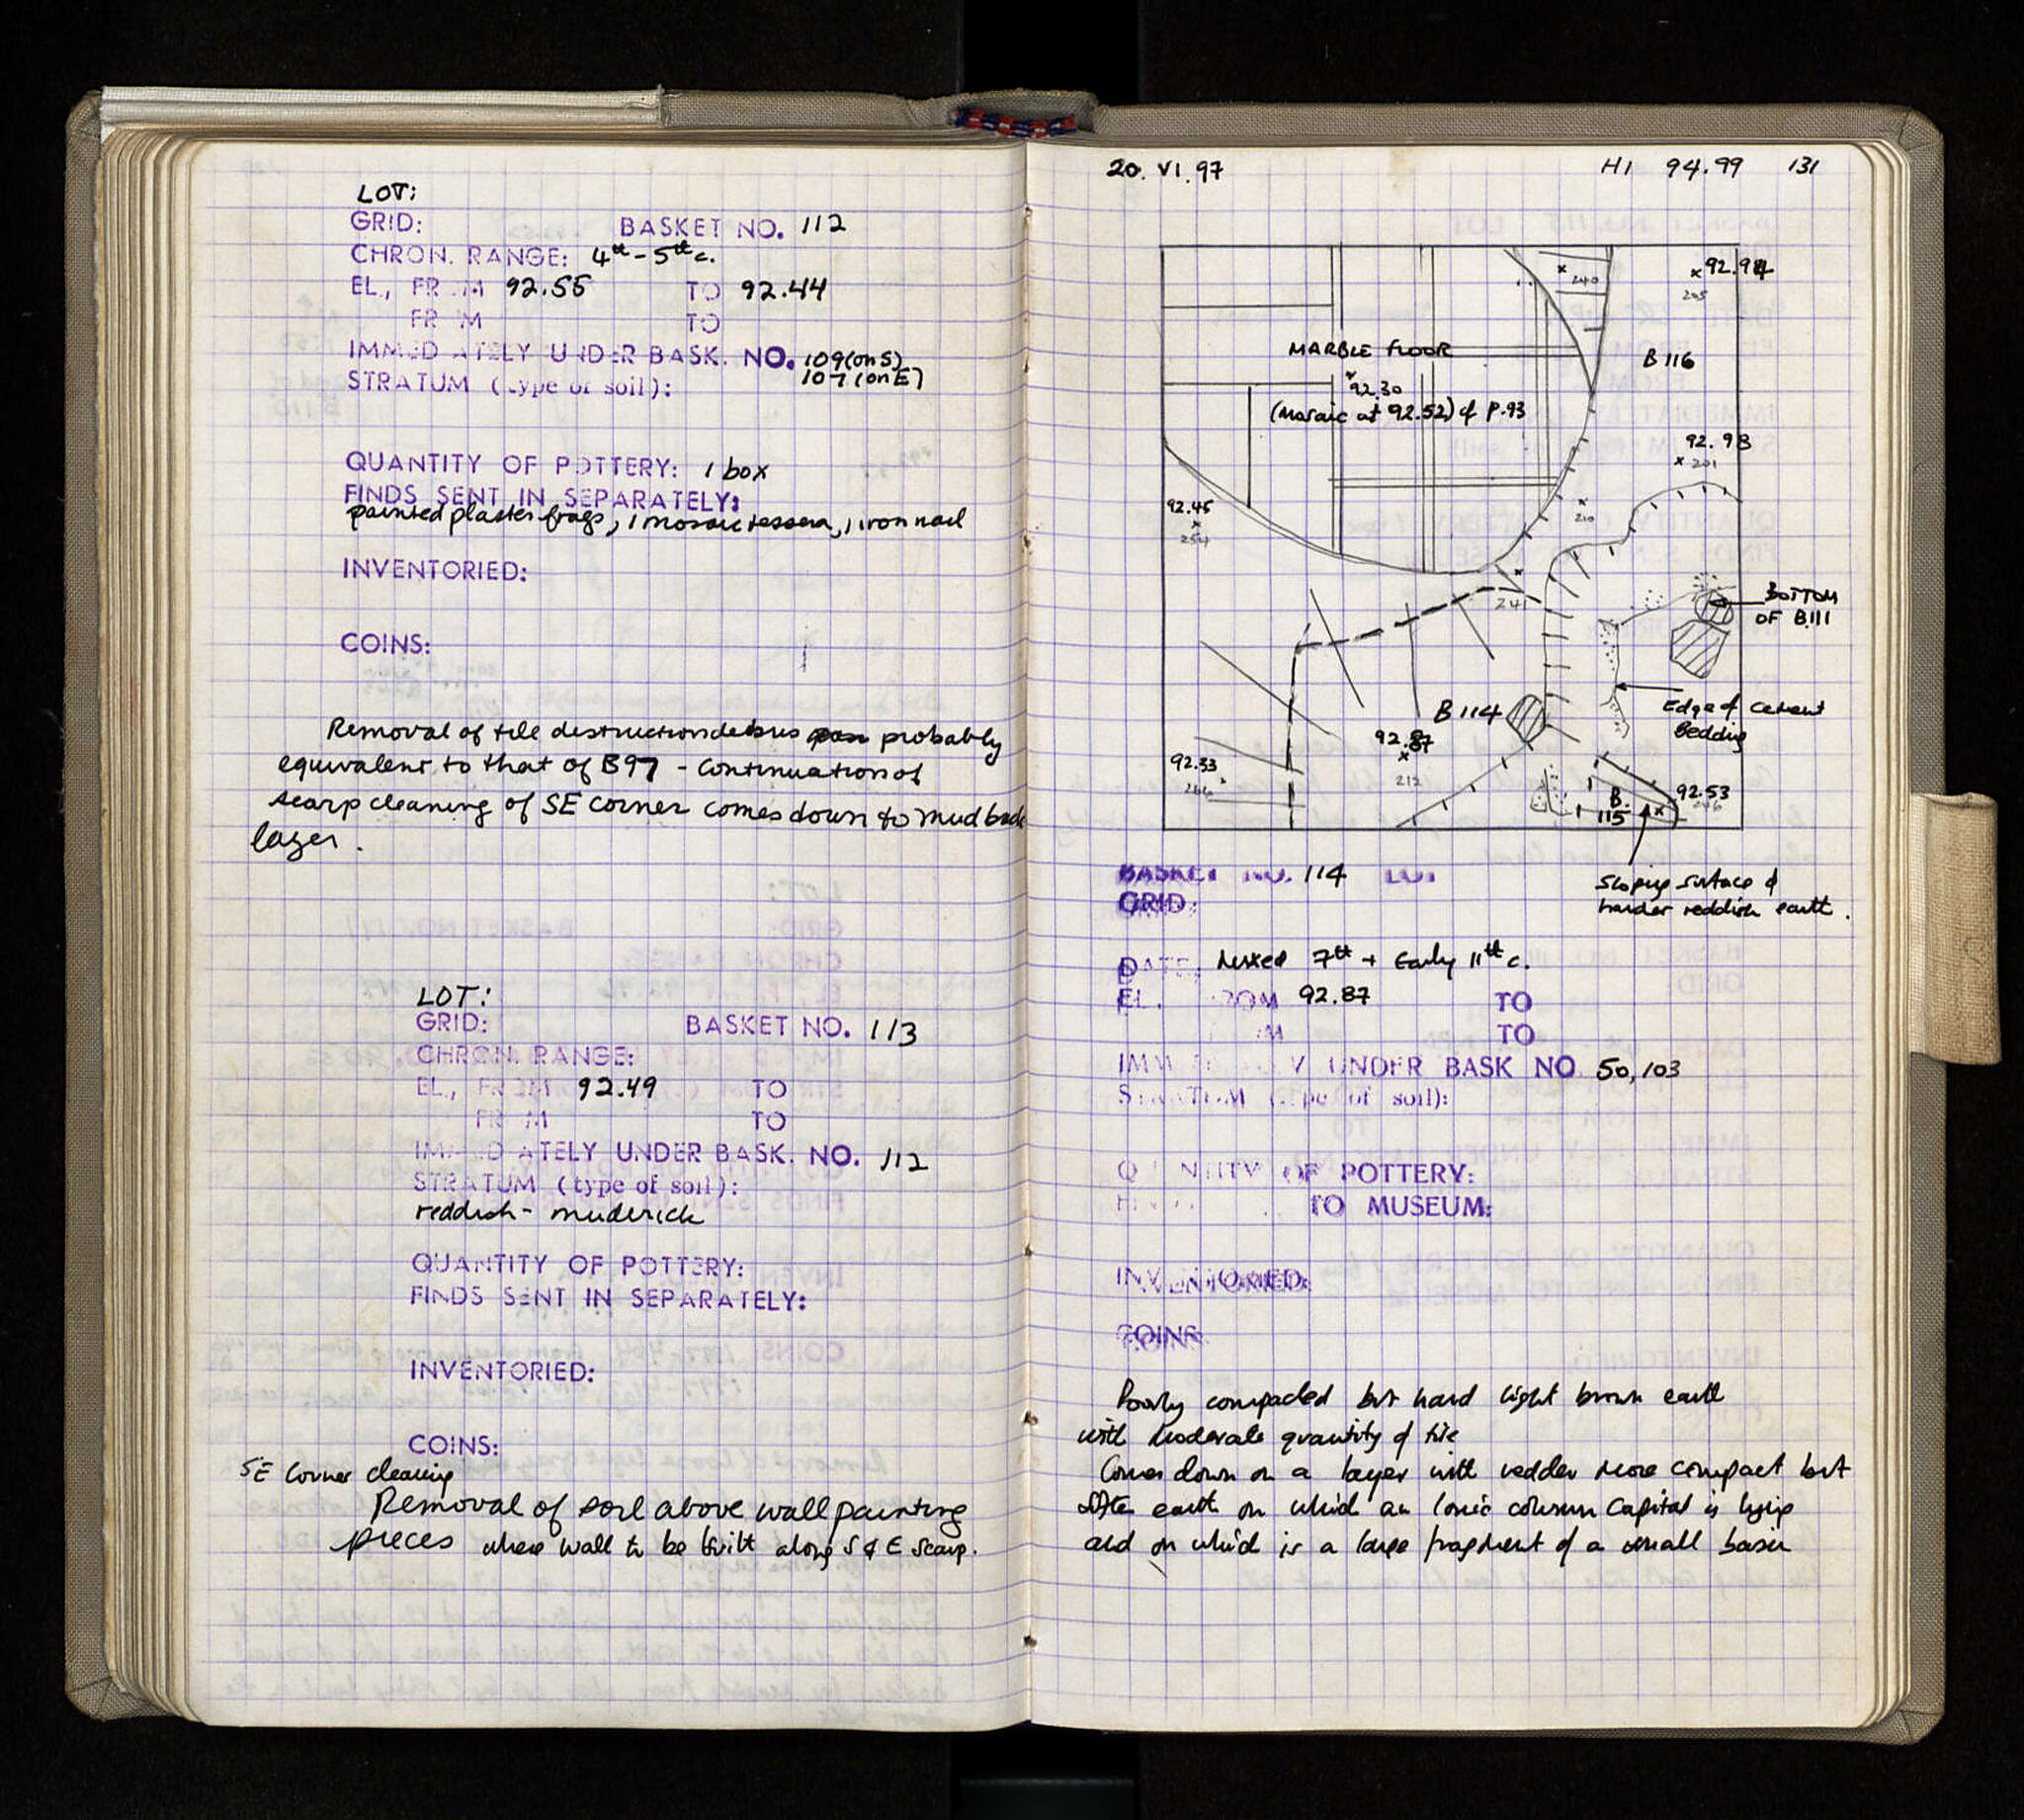 LOT:
GRID: BASKET NO. 112
CHRON. RANGE: 4th - 5th c.
EL., FROM 92.55 TO 92.44
FROM TO
IMMEDIATELY UNDER BASK. NO. 109 (on S)
107 (on E)
STRATUM (type of soil):
QUANTITY OF POTTERY: 1 box
FINDS SENT IN SEPARATELY:
painted plaster frags, 1 mosaic tessera, 1 iron nail
INVENTORIED:
COINS:
Removal of tile destruction debris probably
equivalent to that of B97 - continuation of
scarp cleaning of SE corner comes down to mud brick
layer.
LOT:
GRID: BASKET NO. 113
CHRON. RANGE:
EL., FROM 92.49 TO
FROM TO
IMMEDIATELY UNDER BASK. NO. 112
STRATUM (type of soil):
reddish - mudbrick
QUANTITY OF POTTERY:
FINDS SENT IN SEPARATELY:
INVENTORIED:
COINS:
SE Corner cleaning
Removal of soil above wall painting
pieces where wall to be built along S & E Scarp.
20. VI. 97 HI 94.99 131
92.94
240
205
MARBLE FLOOR
B 116
92.30
(Mosaic at 92.52) cf P.93
92.98
201
92.45
254
210
241
BOTTOM
OF B111
B 114
Edge of cement
Bedding
92.87
212
92.33
266
92.53
246
B.
115
Sloping surface of
harder reddish earth.
BASKET NO. 114 LOT
GRID:
DATE: Mixed 7th + Early 11th c.
EL. FROM 92.87 TO
FROM TO
IMMEDIATELY UNDER BASK NO 50, 103
STRATUM (type of soil):
QUANTITY OF POTTERY:
TO MUSEUM:
INVENTORIED:
COINS
Poorly compacted but hard light brown earth
with moderate quantity of tile
Comes down on a layer with redder more compact but
softer earth on which an Ionic column capital is lying
and on which is a large fragment of a small basin